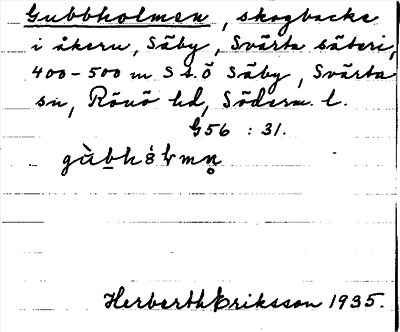 Gubbholmen, skogbacke
i åkern, Säby, Svärta säteri,
400-500 m S s. Ö Säby, Svärta
sn, Rönö hd, Söderm. l.
G56 : 31.
Herberth Eriksson 1935.